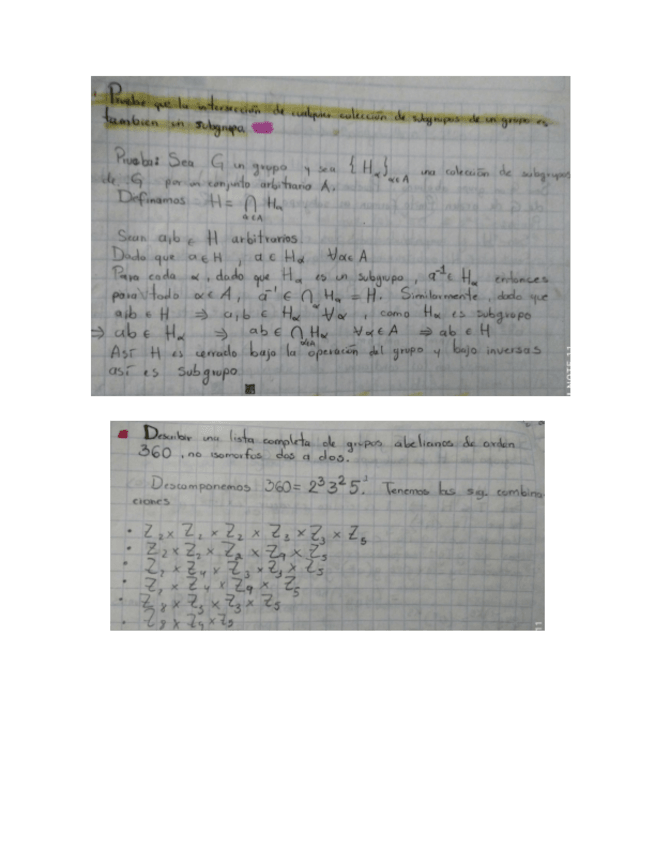 Pruebe que la intersección de cualquier colección de subgrupos de un grupo es
tambien un subgrupo
Prueba: Sea G un grupo y sea {Hα}α∈A una colección de subgrupos
de G por un conjunto arbitrario A.
Definamos H = ∩α∈A Hα
Sean a,b ∈ H arbitrarios.
Dado que a ∈ H, a ∈ Hα ∀α∈A
Para cada α, dado que Hα es un subgrupo, a⁻¹ ∈ Hα entonces
para todo α∈A, a⁻¹ ∈ ∩ Hα = H. Similarmente, dado que
a,b ∈ H ⇒ a,b ∈ Hα ∀α, como Hα es subgrupo
⇒ ab ∈ Hα ⇒ ab ∈ ∩α∈A Hα ∀α∈A ⇒ ab ∈ H
Así H es cerrado bajo la operación del grupo y bajo inversas
así es subgrupo
Describir una lista completa de grupos abelianos de orden
360, no isomorfos dos a dos.
Descomponemos 360 = 2³3²5¹. Tenemos las sig. combina
ciones
• Z₂ × Z₂ × Z₂ × Z₃ × Z₃ × Z₅
• Z₂ × Z₂ × Z₂ × Z₉ × Z₅
• Z₂ × Z₄ × Z₃ × Z₃ × Z₅
• Z₂ × Z₄ × Z₉ × Z₅
• Z₈ × Z₃ × Z₃ × Z₅
• Z₈ × Z₉ × Z₅